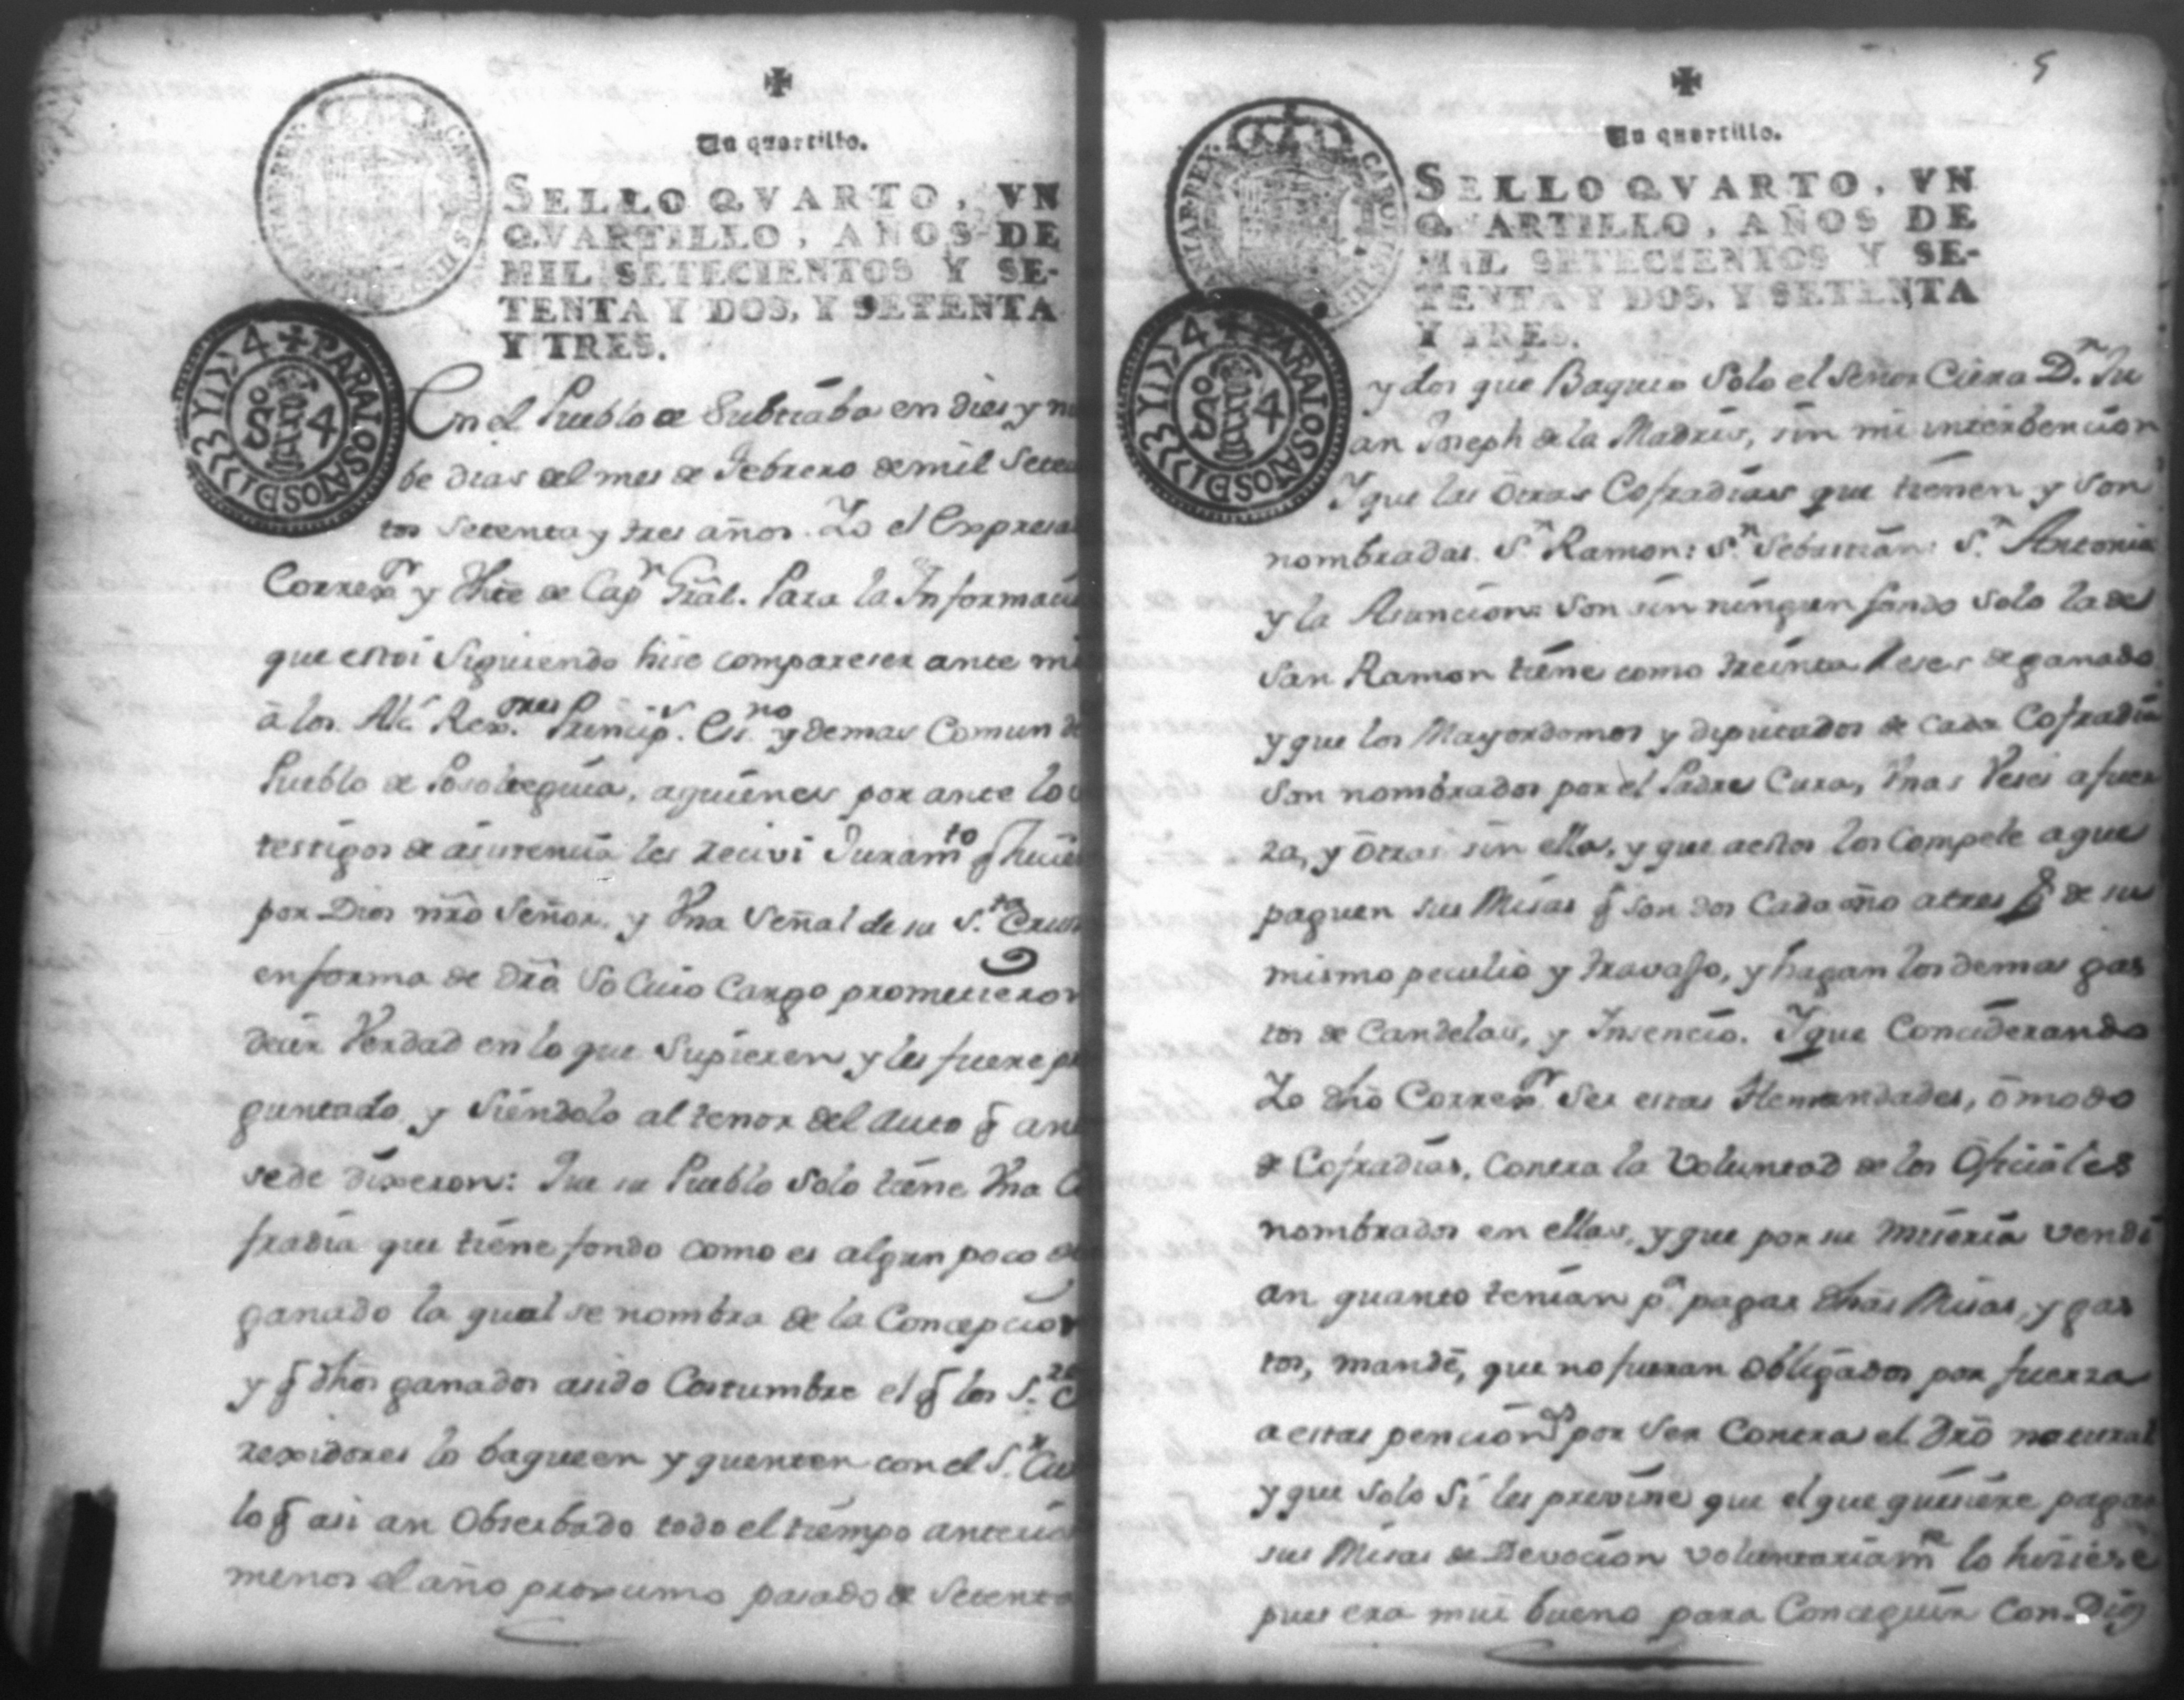 Un quartillo.
SELLO QVARTO, VN
QVARTILLO, AÑOS DE
MIL SETECIENTOS Y SE-
TENTA Y DOS, Y SETENTA
Y TRES.
PARA LOS AÑOS DE
S.º 4
En el Pueblo de Subtiaba en dies y nu
be dias del mes de Febrero de mil Setec
tos Setenta y tres años. Yo el Expresa
Correxr. y Thte de Capn Grãl. Para la Informaci
que estoi Siguiendo hise compareser ante mi
à los Alc.s Rex.ores Princip.s Es.no y demas Comun de
Pueblo de Posolteguia, aquienes por ante lo
testigos de asistencia les recivi Juram.to q̃ hicie
por Dios nrõ Señor, y Vna Señal de su S.ta Crus
en forma de drõ So Cuio Cargo prometieron
decir Verdad en lo que Supieren y les fuere pr
guntado y Siendolo al tenor del Auto q̃ ante
sede dixeron: Que su Pueblo Solo tiene Vna C
fradia que tiene fondo como es algun poco de
ganado la qual se nombra de la Concepcion
y q̃ dhos ganados asido Costumbre el q̃ los S.res C
rexidores lo bagueen y quenten con el S.r Cu
lo q̃ asi an Obserbado todo el tiempo anterio
menos el año proximo pasado de Setenta
5
Un quartillo.
SELLO QVARTO, VN
QVARTILLO, AÑOS DE
MIL SETECIENTOS Y SE-
TENTA Y DOS, Y SETENTA
Y TRES.
CAROLUS III
PARA LOS AÑOS DE
S.º 4
y dos que Baqueo Solo el Señor Cura D.n Ju
an Joseph de la Madris, sin mi interbencion
Y que las Otras Cofradias que tienen y son
nombradas S.n Ramon: S.n Sebastian: S.n Antonio
y la Asuncion: Son sin ningun fondo Solo la de
San Ramon tiene como treinta Reses de ganado
y que los Mayordomos y diputados de cada Cofradia
Son nombrados por el Padre Cura, Vnas Veses a fuer
za, y Otras sin ella, y que aestos los Compele aque
paguen sus Misas q̃ son dos Cada año a tres p.s de su
mismo peculio y travajo, y hagan los demas gas
tos de Candelas, y Insencio. Y que Conciderando
Yo dhõ Correxr. Ser estas Hermandades, ô modo
de Cofradias, Contra la Voluntad de los Oficiales
nombrados en ellas, y que por su miseria vendi
an quanto tenian p.a pagar dhas Misas, y gas
tos, mandé, que no fueran obligados por fuerza
a estas pencion.s por Ser Contra el Drõ natural
y que Solo Si les previne que el que quisiere pagar
sus Misas de Devocion voluntariam.te lo hiciese
pues era mui bueno para Conceguir Con Dios